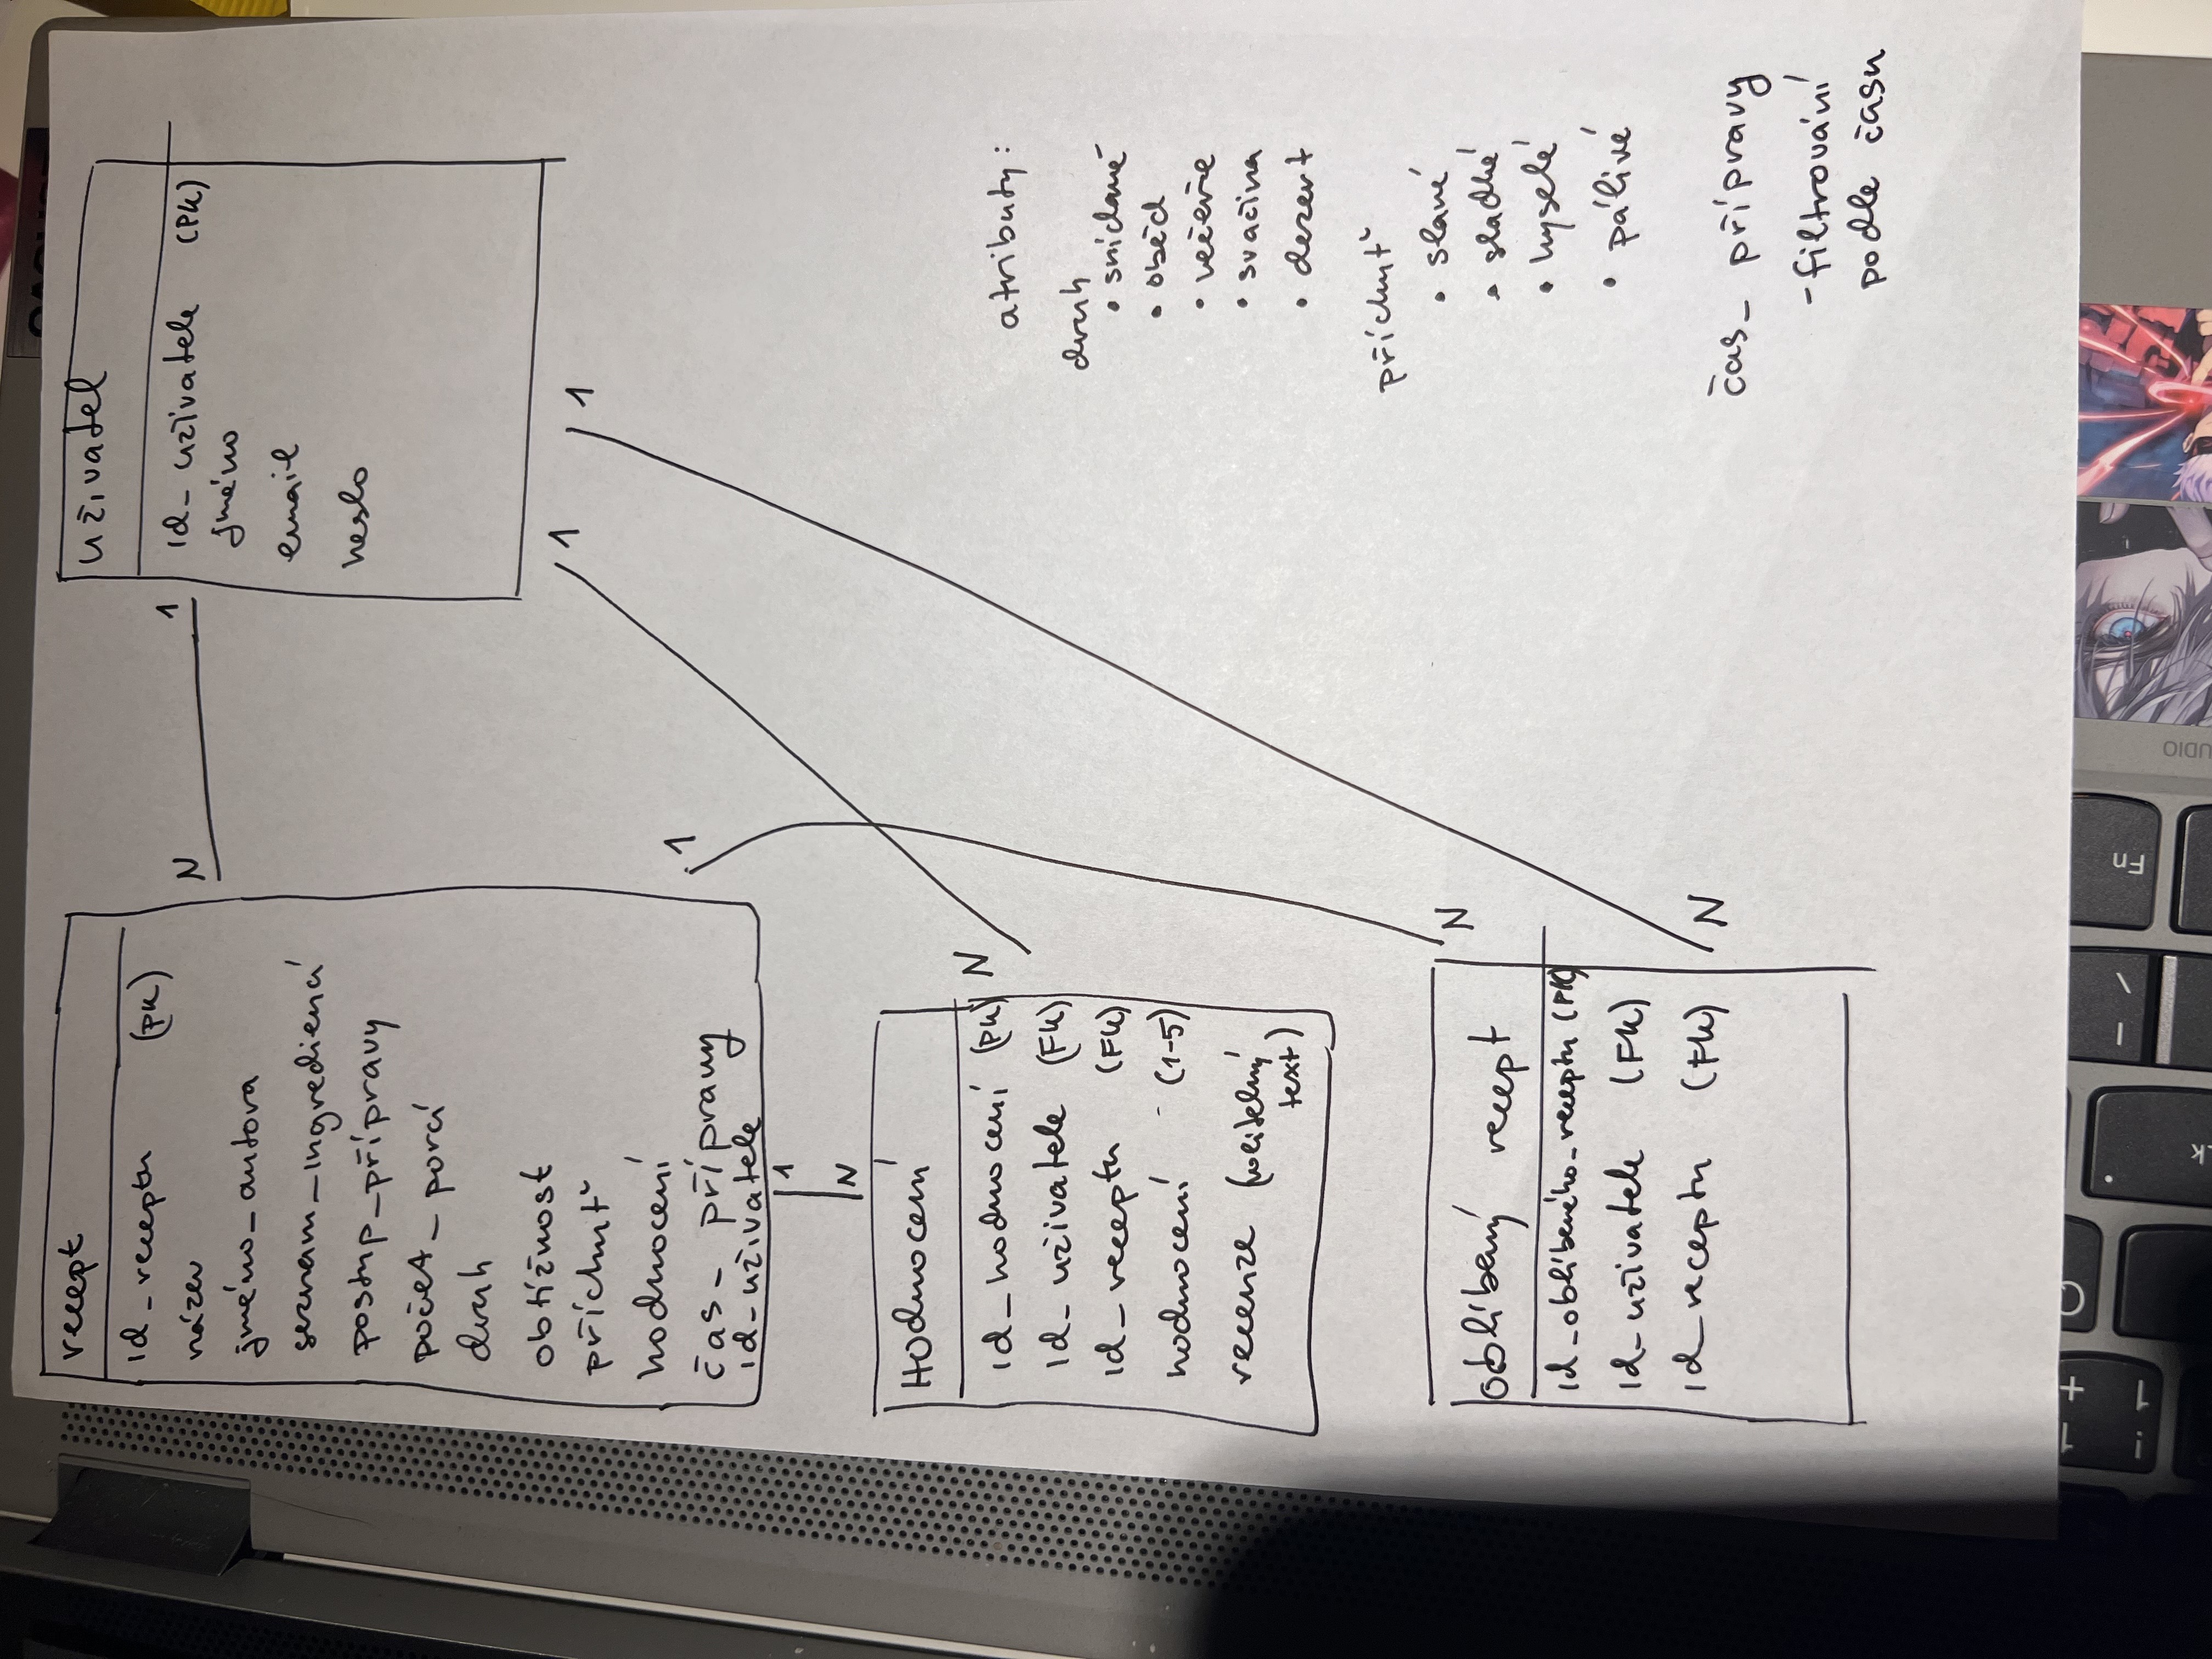 recept
id_receptu (PK)
název
jméno_autora
seznam_ingrediencí
postup_přípravy
počet_porcí
druh
obtížnost
příchuť
hodnocení
čas_přípravy
id_uživatele
N 1
uživatel
id_uživatele (PK)
jméno
email
heslo
1
1
1
1
N
Hodnocení
id_hodnocení (PK)
id_uživatele (FK)
id_receptu (FK)
hodnocení (1-5)
recenze (volitelný
text)
N
oblíbený recept
id_oblíbeného_receptu (PK)
id_uživatele (FK)
id_receptu (FK)
N
N
atributy:
druh
• snídaně
• oběd
• večeře
• svačina
• dezert
příchuť
• slané
• sladké
• kyselé
• pálivé
čas_přípravy
- filtrování
podle času
1
+
!
1
Q
|
\
Fn
UDIO